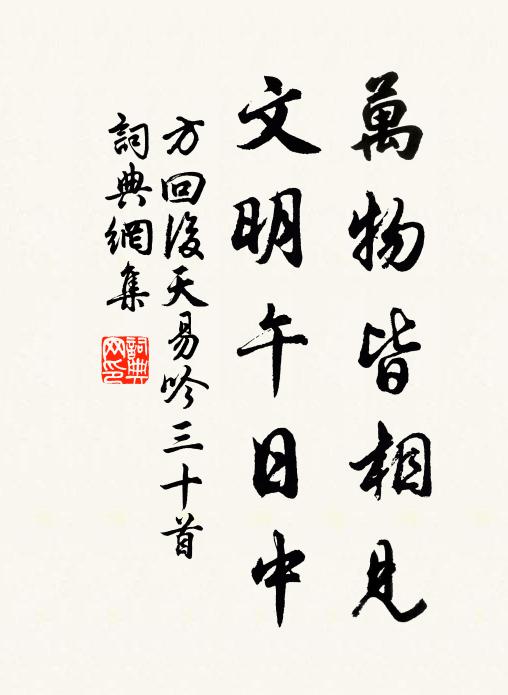 萬物皆相見
文明午日中
方回後天易吟三十首
詞典網集
詞典網印